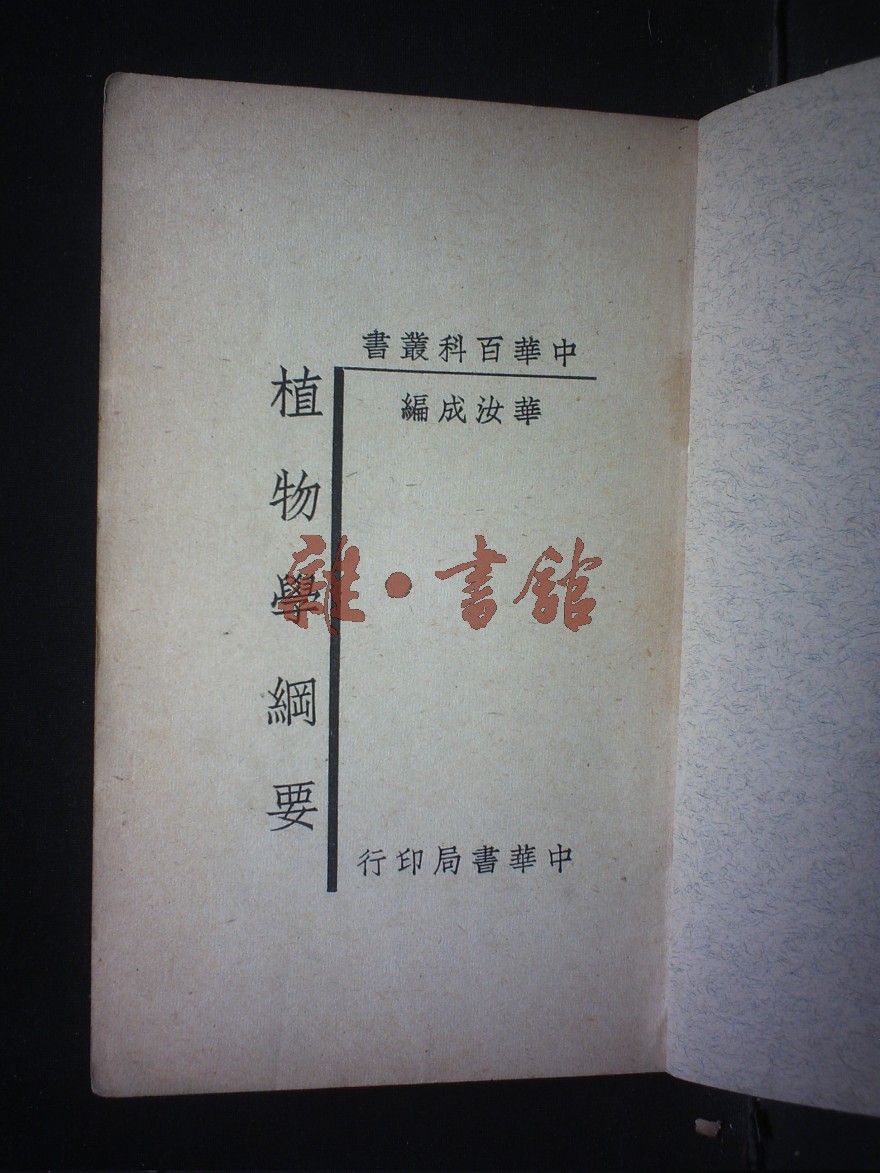 中華百科叢書
華汝成編
植物學綱要
中華書局印行
雜·書館